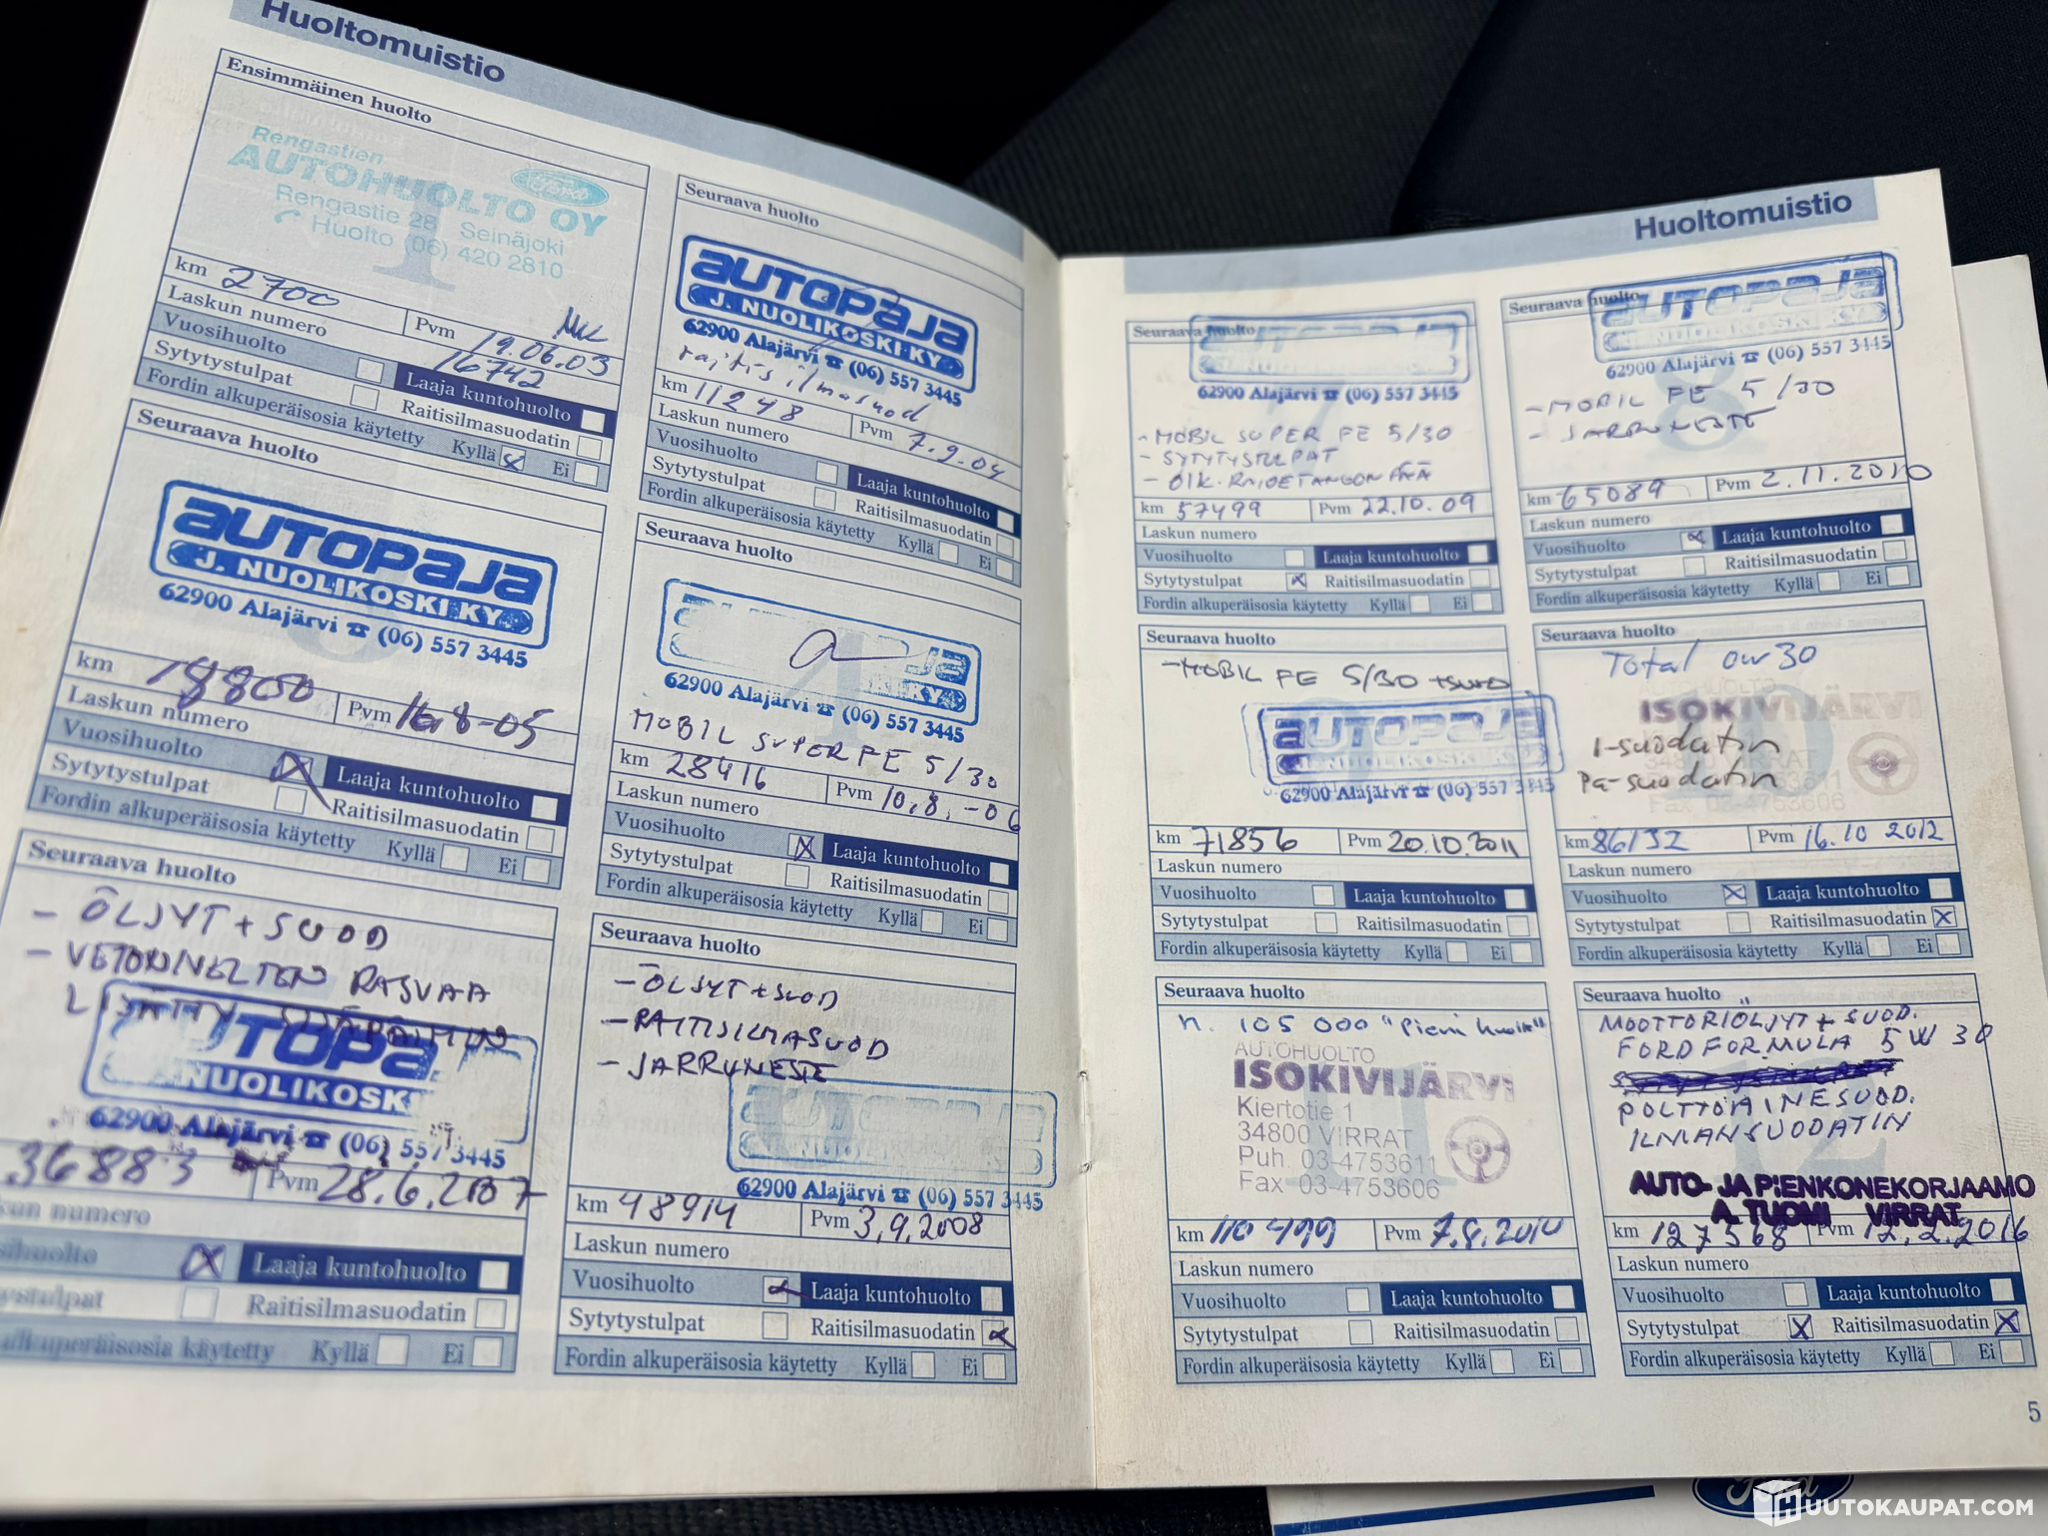 Huoltomuistio
Ensimmäinen huolto
Rengastien
AUTOHUOLTO OY
Ford
Rengastie 28 Seinäjoki
Huolto (06) 420 2810
1
km 2700
Pvm 19.06.03
Laskun numero 16742
Vuosihuolto
Laaja kuntohuolto
Sytytystulpat
Raitisilmasuodatin
Fordin alkuperäisosia käytetty Kyllä Ei
Seuraava huolto
AUTOPAJA
J. NUOLIKOSKI KY
62900 Alajärvi ☎ (06) 557 3445
raitisilmasuod
km 11248
Pvm 7.9.04
Laskun numero
Vuosihuolto
Laaja kuntohuolto
Sytytystulpat
Raitisilmasuodatin
Fordin alkuperäisosia käytetty Kyllä Ei
Seuraava huolto
AUTOPAJA
J. NUOLIKOSKI KY
62900 Alajärvi ☎ (06) 557 3445
km 18800
Pvm 16.8-05
Laskun numero
Vuosihuolto
Laaja kuntohuolto
Sytytystulpat
Raitisilmasuodatin
Fordin alkuperäisosia käytetty Kyllä Ei
Seuraava huolto
4
JA
62900 Alajärvi ☎ (06) 557 3445
MOBIL SUPER FE 5/30
km 28416
Pvm 10.8.-06
Laskun numero
Vuosihuolto
Laaja kuntohuolto
Sytytystulpat
Raitisilmasuodatin
Fordin alkuperäisosia käytetty Kyllä Ei
Seuraava huolto
- ÖLJYT + SUOD
- VETONIVELTEN RASVAA
LISÄTTY
AUTOPA
NUOLIKOSK
62900 Alajärvi ☎ (06) 557 3445
36883
Pvm 28.6.2007
kun numero
sihuolto
Laaja kuntohuolto
ystulpat
Raitisilmasuodatin
alkuperäisosia käytetty Kyllä Ei
Seuraava huolto
- ÖLJYT + SUOD
- RAITISILMASUOD
- JARRUNESTE
AUTOPAJA
62900 Alajärvi ☎ (06) 557 3445
km 48914
Pvm 3.9.2008
Laskun numero
Vuosihuolto
Laaja kuntohuolto
Sytytystulpat
Raitisilmasuodatin
Fordin alkuperäisosia käytetty Kyllä Ei
Huoltomuistio
Seuraava huolto
62900 Alajärvi ☎ (06) 557 3445
7
- MOBIL SUPER FE 5/30
- SYTYTYSTULPAT
- OIK. RAIDETANGON PÄÄ
km 57499
Pvm 22.10.09
Laskun numero
Vuosihuolto
Laaja kuntohuolto
Sytytystulpat
Raitisilmasuodatin
Fordin alkuperäisosia käytetty Kyllä Ei
Seuraava huolto
AUTOPAJA
J. NUOLIKOSKI KY
62900 Alajärvi ☎ (06) 557 3445
8
- MOBIL FE 5/30
- JARRUNESTE
km 65089
Pvm 2.11.2010
Laskun numero
Vuosihuolto
Laaja kuntohuolto
Sytytystulpat
Raitisilmasuodatin
Fordin alkuperäisosia käytetty Kyllä Ei
Seuraava huolto
- MOBIL FE 5/30 + SUOD.
AUTOPAJA
J. NUOLIKOSKI KY
62900 Alajärvi ☎ (06) 557 3445
km 71856
Pvm 20.10.2011
Laskun numero
Vuosihuolto
Laaja kuntohuolto
Sytytystulpat
Raitisilmasuodatin
Fordin alkuperäisosia käytetty Kyllä Ei
Seuraava huolto
Total 0W30
ISOKIVIJÄRVI
I-suodatin
VIRRAT
Pa-suodatin
Fax 03-4753606
km 86132
Pvm 16.10 2012
Laskun numero
Vuosihuolto
Laaja kuntohuolto
Sytytystulpat
Raitisilmasuodatin
Fordin alkuperäisosia käytetty Kyllä Ei
Seuraava huolto
n. 105 000 "Pieni huolto"
AUTOHUOLTO
ISOKIVIJÄRVI
Kiertotie 1
34800 VIRRAT
Puh. 03-4753611
Fax 03-4753606
11
km 110 499
Pvm
Laskun numero
Vuosihuolto
Laaja kuntohuolto
Sytytystulpat
Raitisilmasuodatin
Fordin alkuperäisosia käytetty Kyllä Ei
Seuraava huolto
MOOTTORIÖLJYT + SUOD.
FORD FORMULA 5W30
POLTTOAINESUOD.
ILMANSUODATIN
12
AUTO- JA PIENKONEKORJAAMO
A. TUOMI VIRRAT
km 127568
Pvm 12.2.2016
Laskun numero
Vuosihuolto
Laaja kuntohuolto
Sytytystulpat
Raitisilmasuodatin
Fordin alkuperäisosia käytetty Kyllä Ei
5
Ford
HUUTOKAUPAT.COM